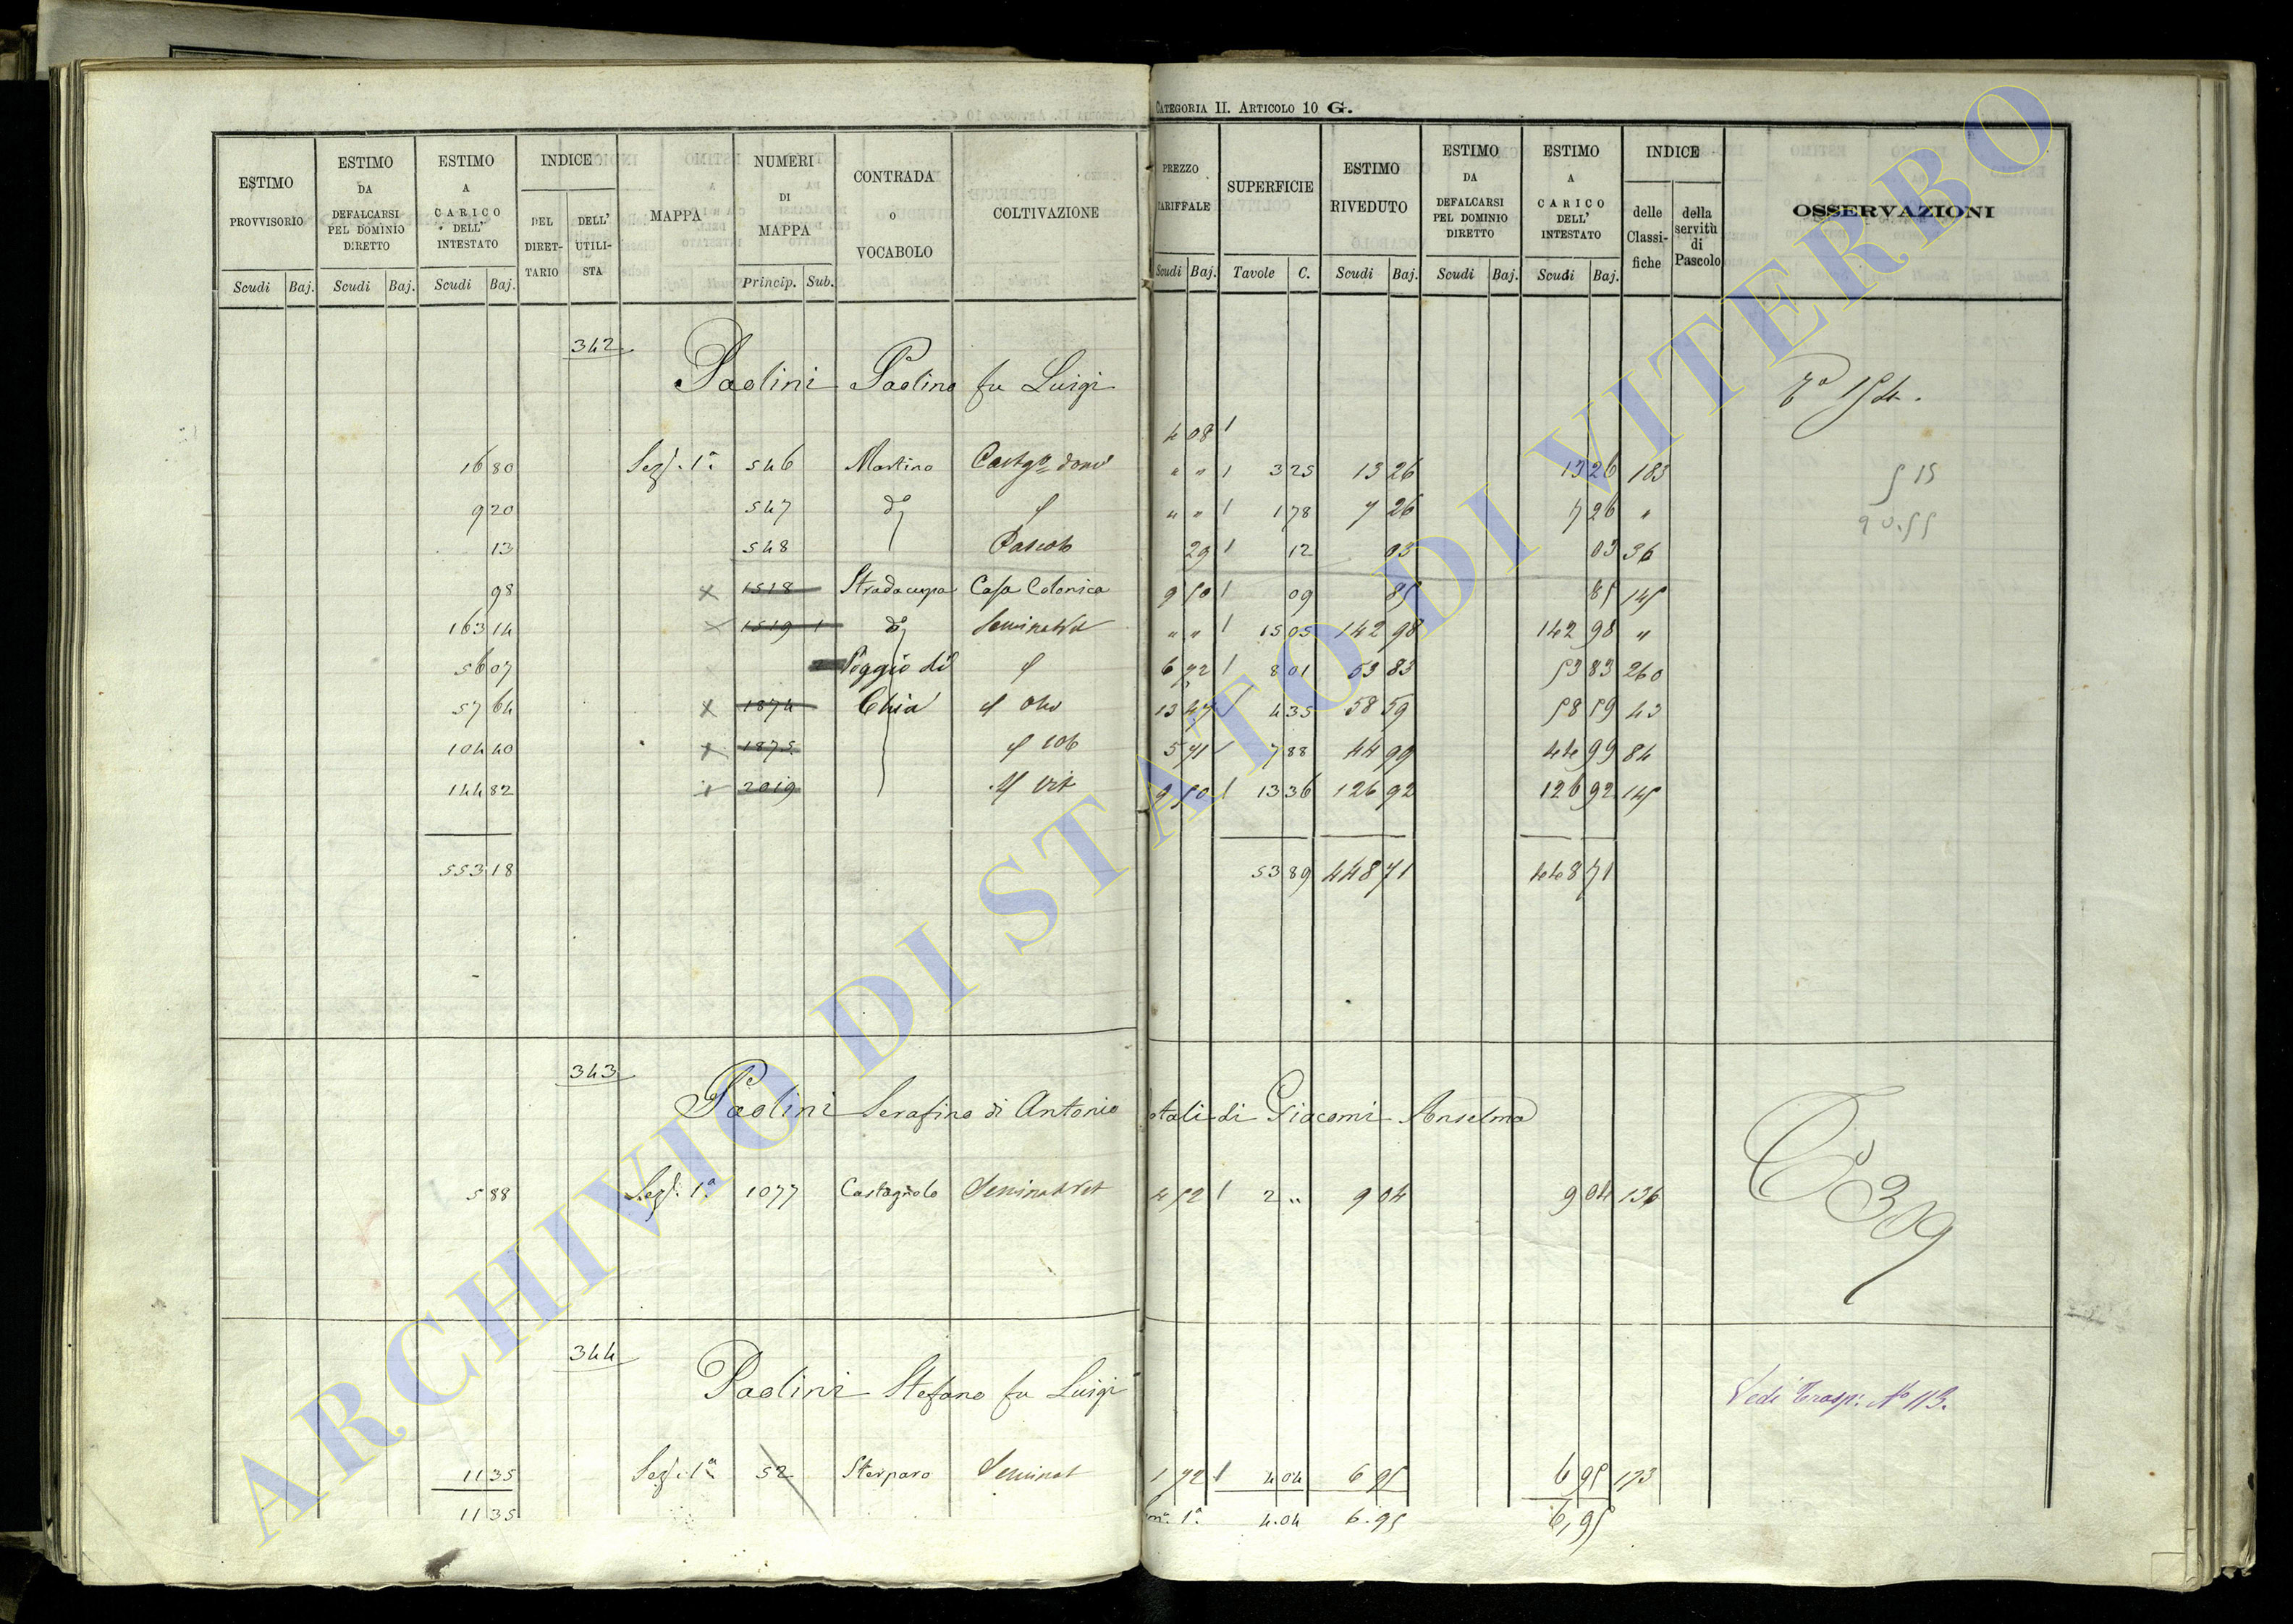 CATEGORIA II. ARTICOLO 10 G.
ESTIMO PROVVISORIO | ESTIMO DA DEFALCARSI PEL DOMINIO DIRETTO | ESTIMO A CARICO DELL' INTESTATO | INDICE | MAPPA | NUMERI DI MAPPA | CONTRADA O VOCABOLO | COLTIVAZIONE | PREZZO TARIFFALE | SUPERFICIE | ESTIMO RIVEDUTO | ESTIMO DA DEFALCARSI PEL DOMINIO DIRETTO | ESTIMO A CARICO DELL' INTESTATO | INDICE | OSSERVAZIONI
DEL DIRETTARIO | DELL' UTILISTA | delle Classifiche | della servitù di Pascolo
Scudi | Baj. | Scudi | Baj. | Scudi | Baj. | Princip. | Sub. | Scudi | Baj. | Tavole | C. | Scudi | Baj. | Scudi | Baj. | Scudi | Baj.
342
Paolini Paolino fu Luigi
4 08
16 80 | Sez. 1ª | 546 | Martino | Castgto dom | " " | 3 25 | 13 26 | 13 26 | 183
9 20 | 547 | do | " " | 1 78 | 7 26 | 7 26 | "
13 | 548 | Pascolo | 29 | 12 | 03 | 03 | 36
98 | x | 1518 | Stradacupa | Casa Colonica | 9 50 | 09 | 85 | 85 | 145
163 14 | x | 1519 1 | do | Seminat Vit | " " | 15 05 | 142 98 | 142 98 | "
56 07 | Poggio di | 6 72 | 8 01 | 53 83 | 53 83 | 260
57 64 | x | 1874 | Chia | 13 47 | 4 35 | 58 59 | 58 59 | 43
104 40 | x | 1875 | 5 71 | 7 88 | 44 99 | 44 99 | 84
144 82 | x | 2019 | vit | 9 50 | 13 36 | 126 92 | 126 92 | 145
553 18 | 53 89 | 448 71 | 448 71
343
Paolini Serafino di Antonio | otali di Giacomi Anselma
5 88 | Sez. 1ª | 1077 | Castagnolo | Seminat Vit | 4 52 | 2 " | 9 04 | 9 04 | 136
309
344
Paolini Stefano fu Luigi
Vedi Trasp: No 113.
11 35 | Sez. 1ª | 52 | Sterparo | Seminat | 1 72 | 4 04 | 6 95 | 6 95 | 173
11 35 | 1ª | 4.04 | 6.95 | 6,95
ARCHIVIO DI STATO DI VITERBO